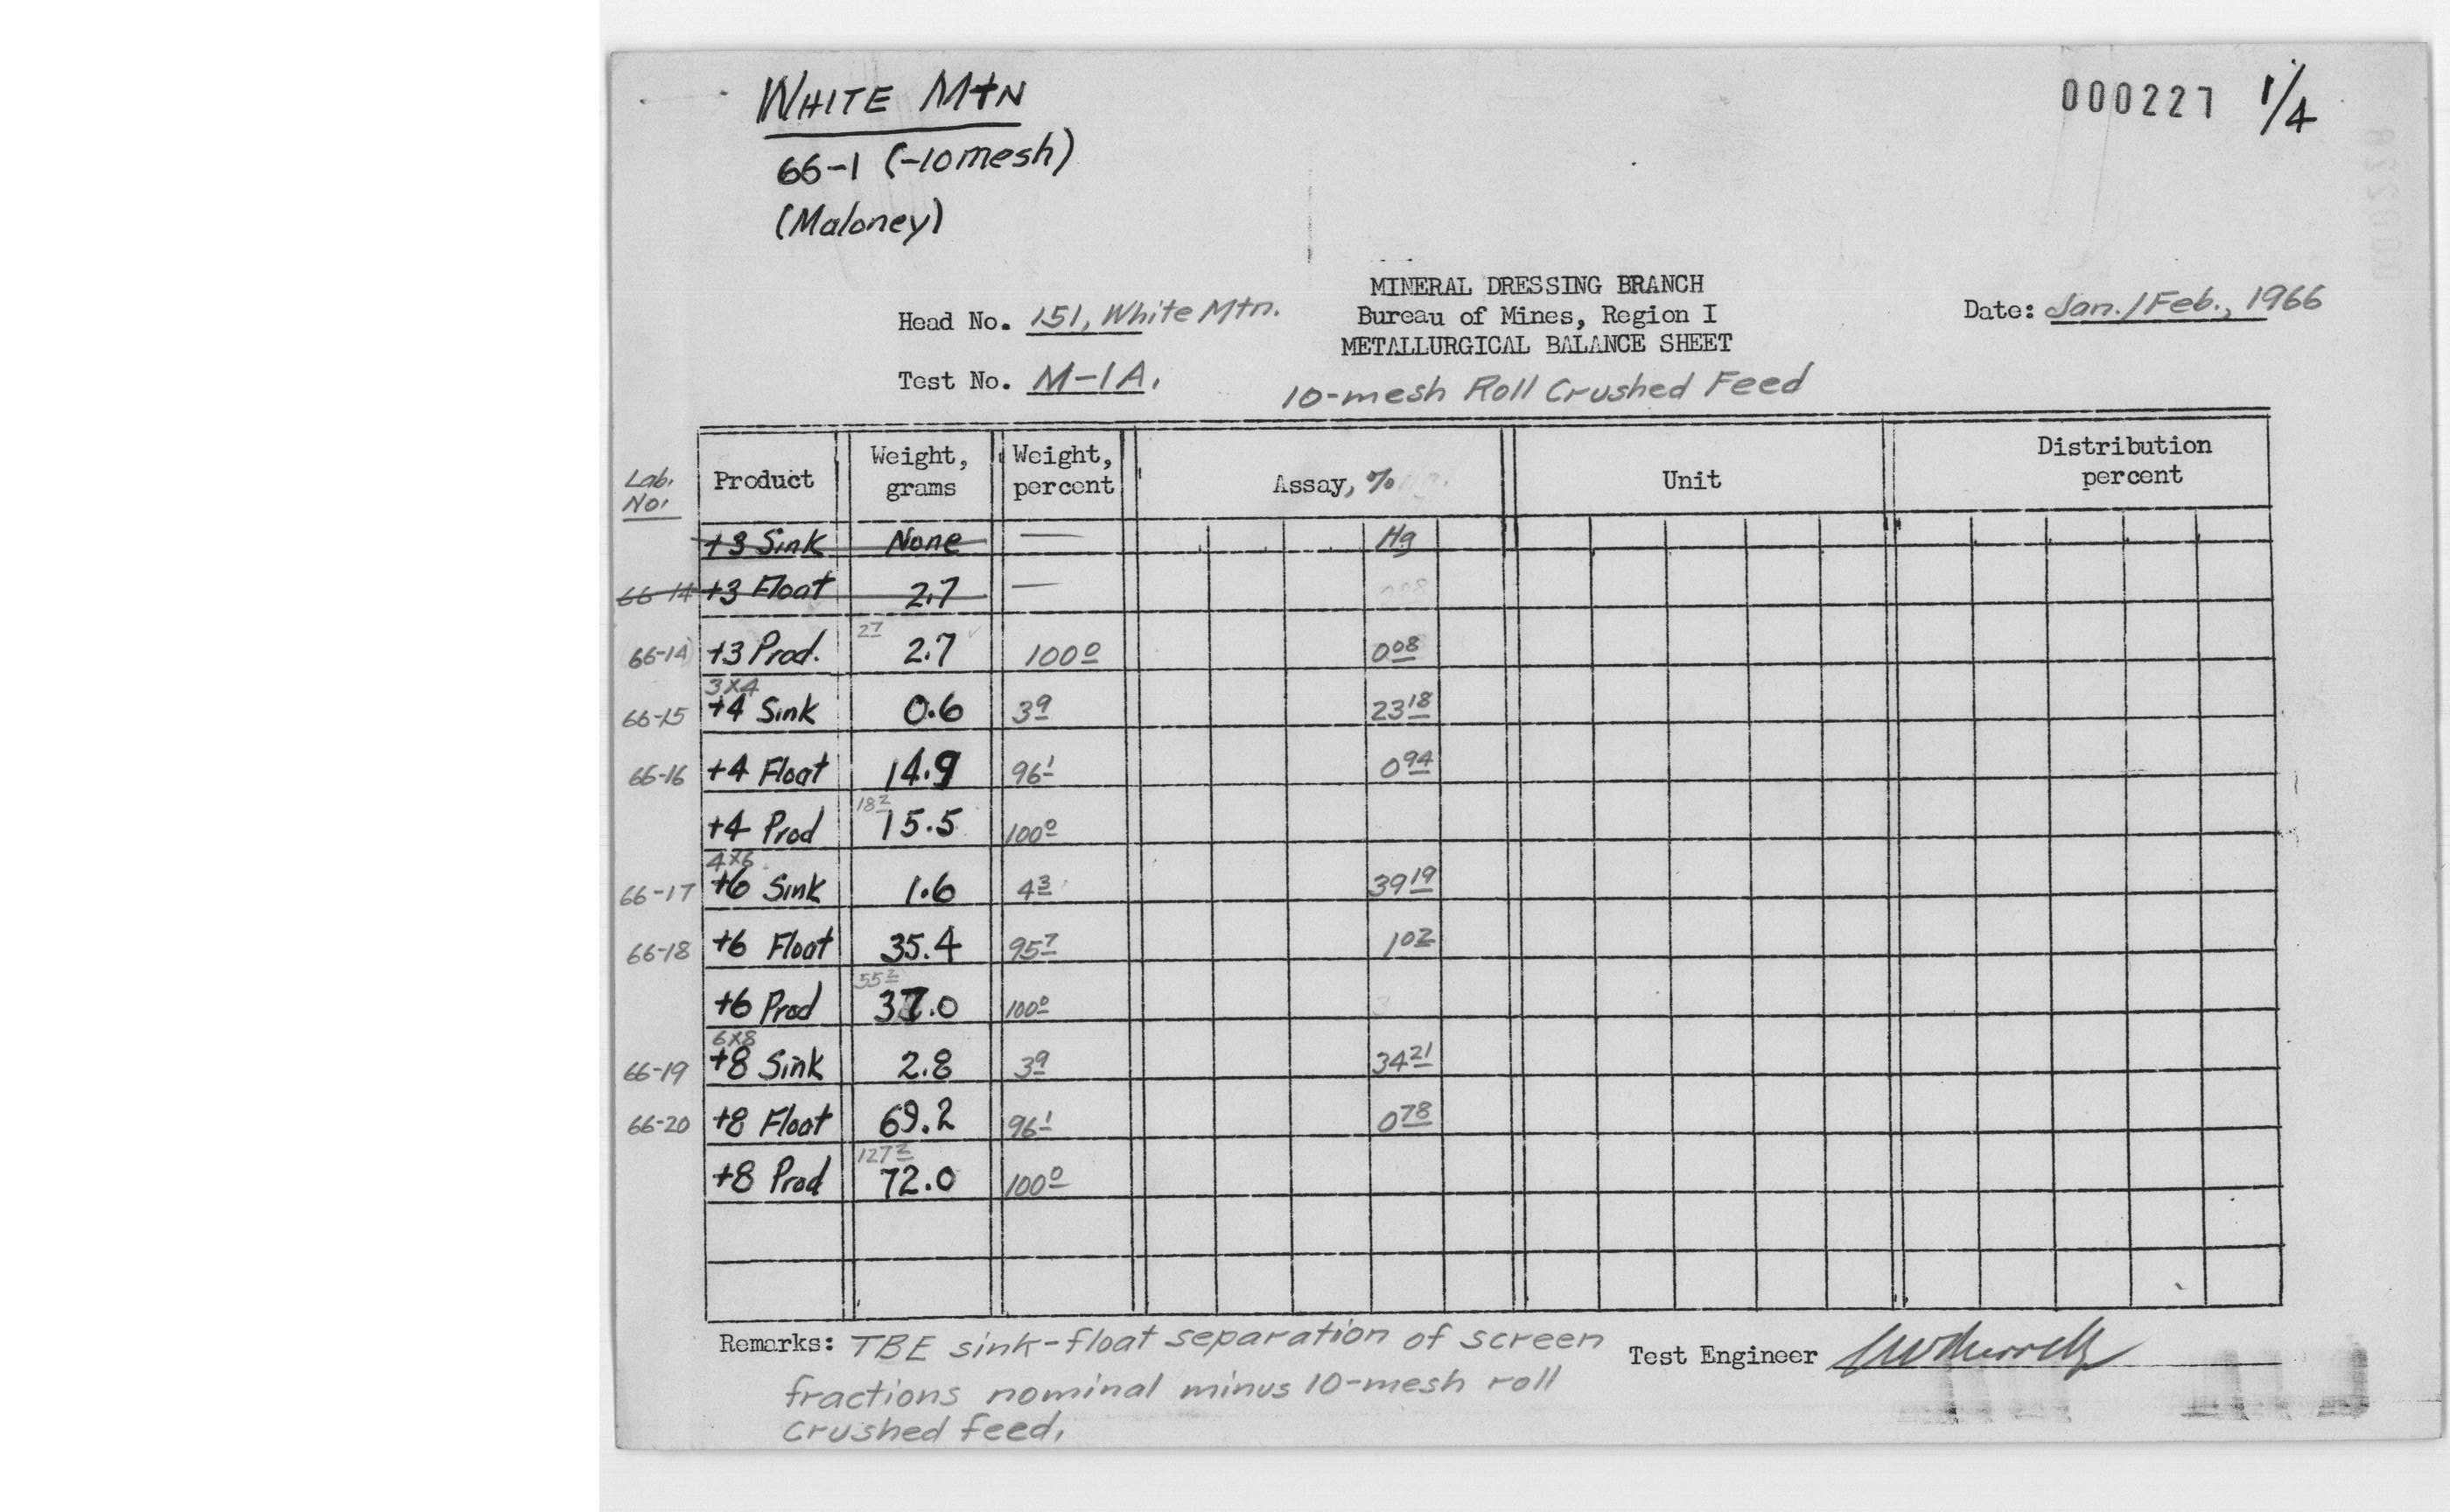 WHITE MTN
000227 1/4
66-1 (-10mesh)
(Maloney)
MINERAL DRESSING BRANCH
Head No. 151, White Mtn. Bureau of Mines, Region I Date: Jan./Feb., 1966
METALLURGICAL BALANCE SHEET
Test No. M-1A. 10-mesh Roll Crushed Feed
Lab. No. Product Weight, grams Weight, percent Assay, % Unit Distribution percent
+3 Sink None — Hg
66-14 +3 Float 2.7 —
66-14 +3 Prod. 27 2.7 100 0 0 08
3x4
66-15 +4 Sink 0.6 3 9 23 18
66-16 +4 Float 14.9 96 1 0 94
18 2
+4 Prod 15.5 100 0
4x6
66-17 +6 Sink 1.6 4 3 39 19
66-18 +6 Float 35.4 95 7 1 02
55 2
+6 Prod 37.0 100 0
6x8
66-19 +8 Sink 2.8 3 9 34 21
66-20 +8 Float 69.2 96 1 0 78
127 2
+8 Prod 72.0 100 0
Remarks: TBE sink-float separation of screen Test Engineer
fractions nominal minus 10-mesh roll
crushed feed.